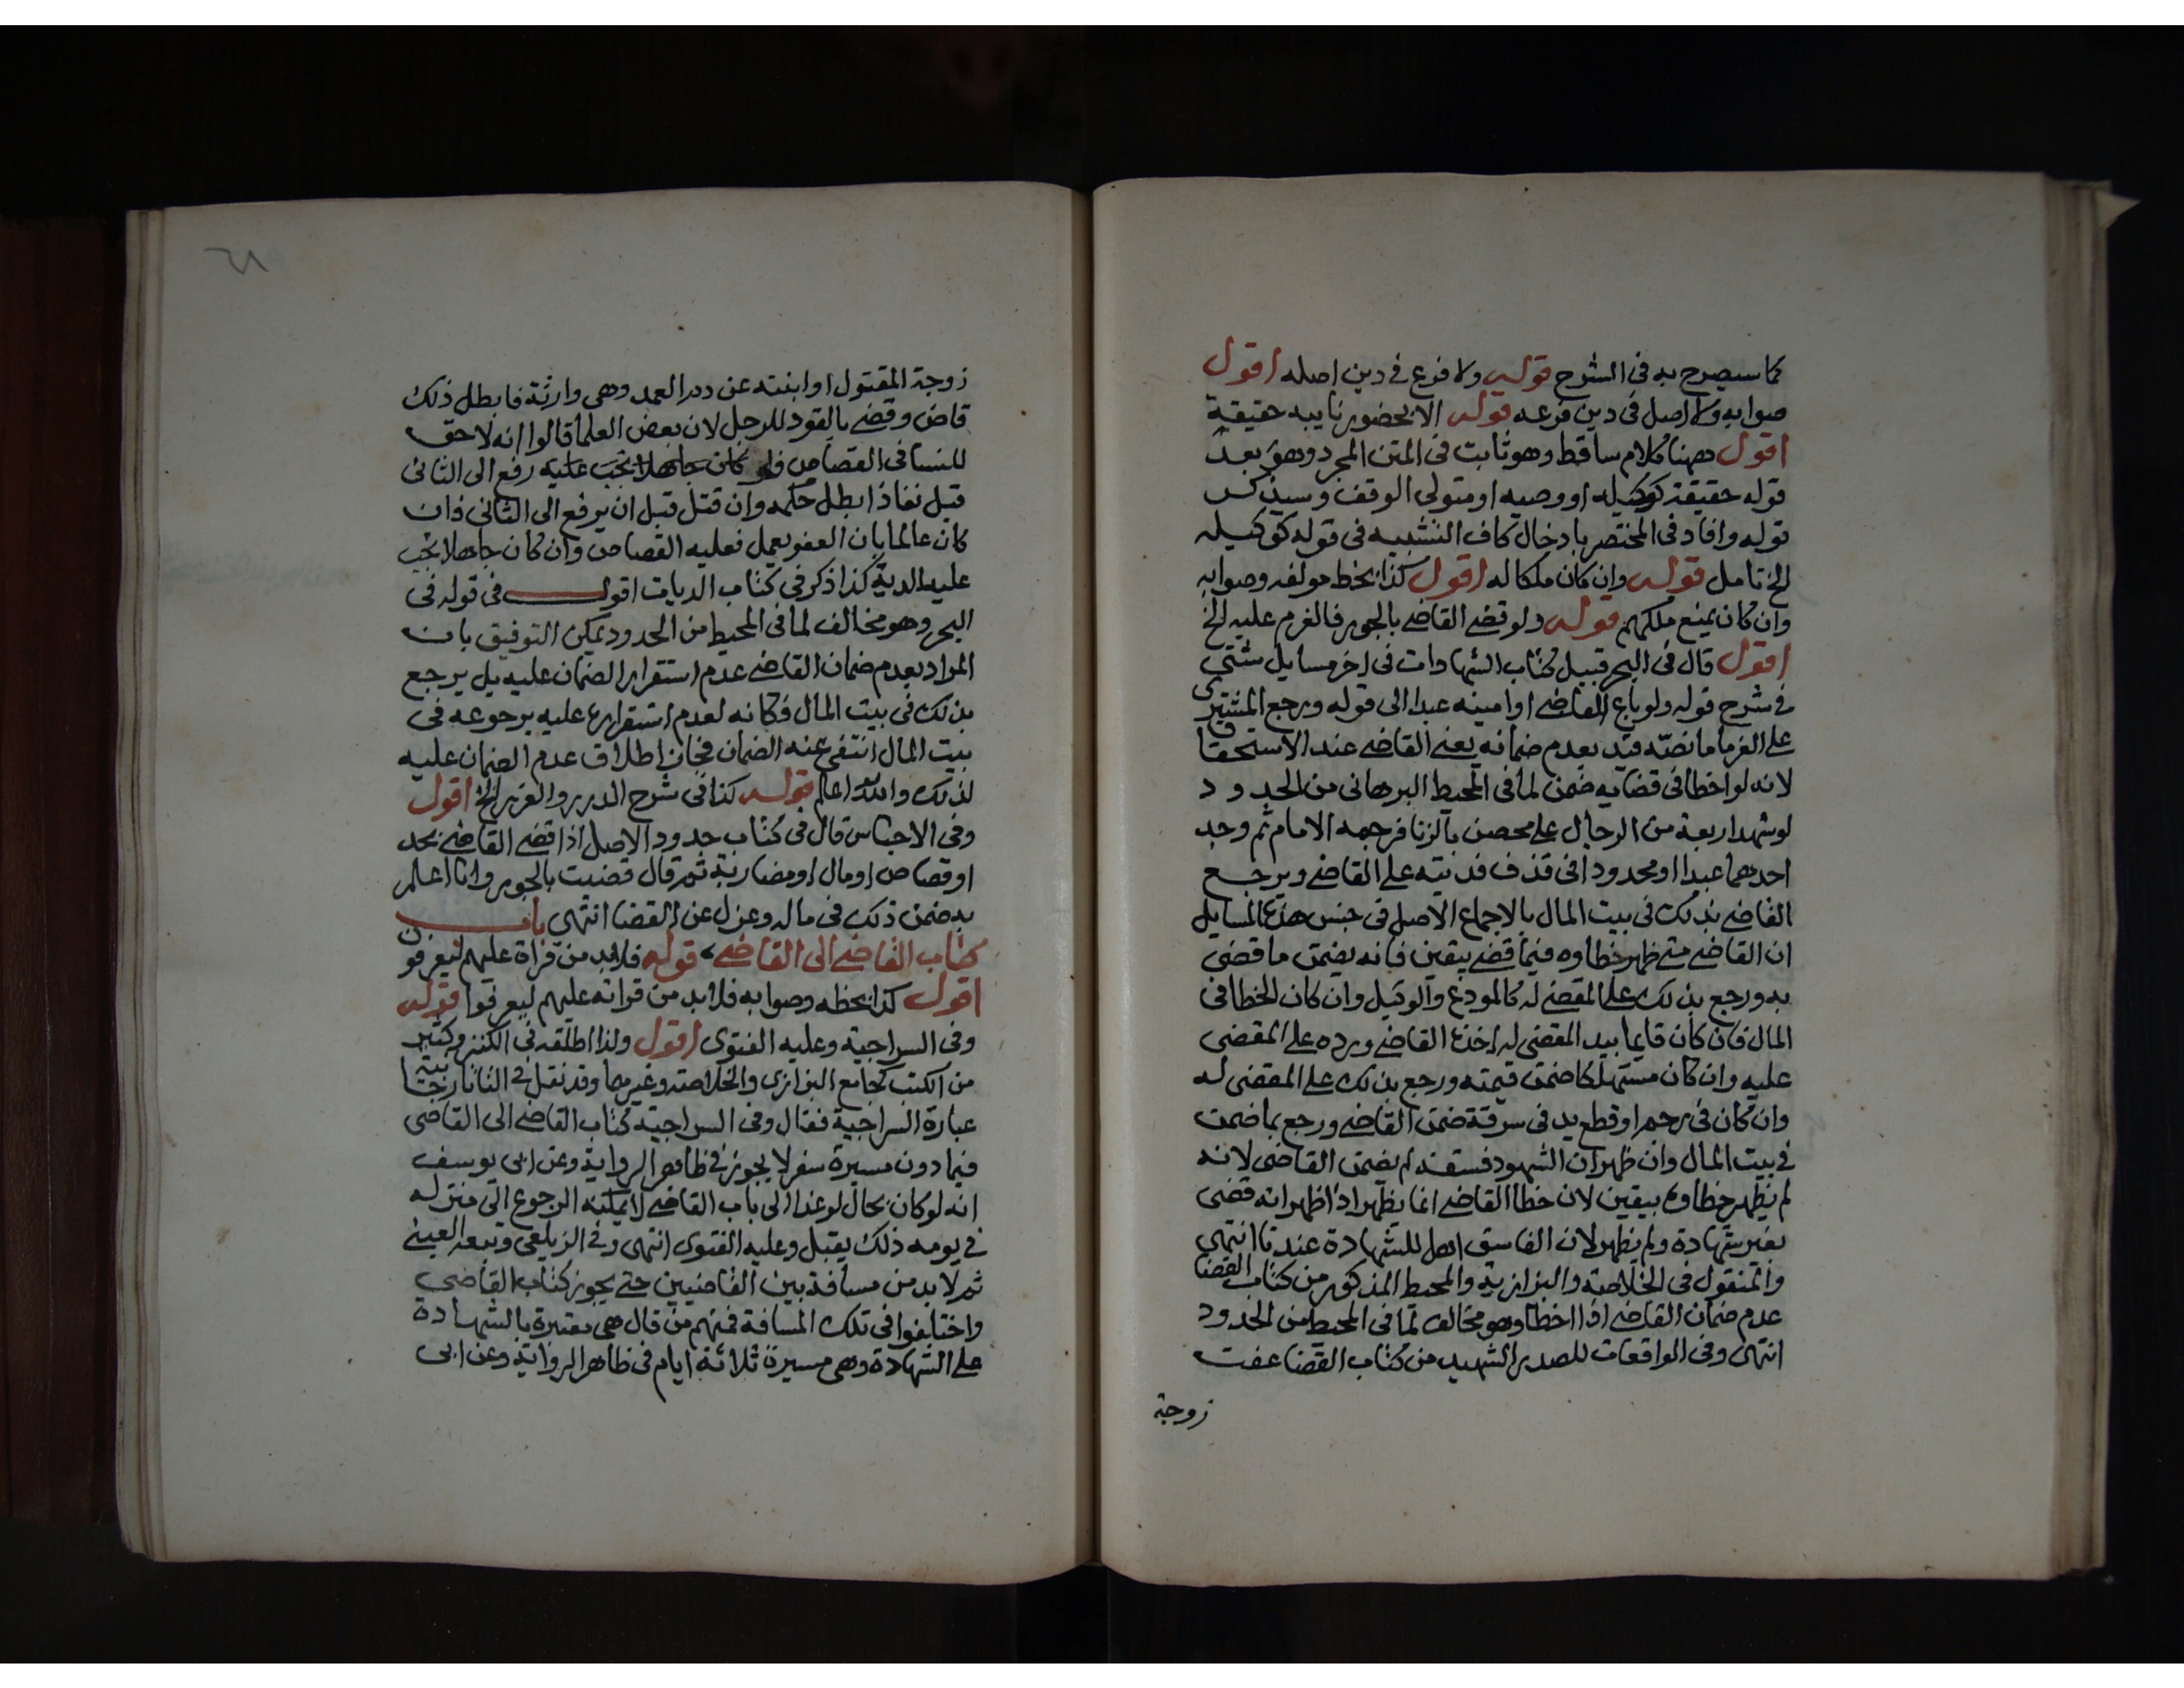 كما سيصرح به فى الشرح قوله ولا فرع فى دين اصله اقول
صوابه ولا اصل فى دين فرعه قوله الا بحضور نايبه حقيقة
اقول ههنا كلام ساقط وهو ثابت فى المتن المجرد وهو بعد
قوله حقيقة كوكيله او وصيه او متولى الوقف وسيذكر
قوله وافاد فى المختصر بادخال كاف التشبيه فى قوله كوكيله
الخ تامل قوله وان كان ملكا له اقول كذا بخط مولفه وصوابه
وان كان يمنع ملكهم قوله ولو قضى القاضى بالجور فالغرم عليه الخ
اقول قال فى البحر قبيل كتاب الشهادات فى اخر مسايل شتى
فى شرح قوله ولو باع القاضى او امينه عبدا الى قوله ورجع المشترى
على الغرما ما نصه قيد بعدم ضمانه يعنى القاضى عند الاستحقاق
لانه لو اخطا فى قضايه ضمن لما فى المحيط البرهانى من الحدود
لو شهد اربعة من الرجال على محصن بالزنا فرجمه الامام ثم وجد
احدهما عبدا او محدودا فى قذف فديته على القاضى ويرجع
القاضى بذلك فى بيت المال بالاجماع الاصل فى جنس هذه المسايل
ان القاضى متى ظهر خطاوه فيما قضى بيقين فانه يضمن ما قضى
به ورجع بذلك على المقضى له كالمودع والوكيل وان كان الخطا فى
المال فان كان قايما بيد المقضى له اخذه القاضى ورده على المقضى
عليه وان كان مستهلكا ضمن قيمته ورجع بذلك على المقضى له
وان كان فى رجم او قطع يد فى سرقة ضمن القاضى ورجع بما ضمن
فى بيت المال وان ظهر ان الشهود فسقة لم يضمن القاضى لانه
لم يظهر خطاوه بيقين لان خطا القاضى انما يظهر اذا ظهر انه قضى
بغير شهادة ولم يظهر لان الفاسق اهل للشهادة عندنا انتهى
والمنقول فى الخلاصة والبزازية والمحيط المذكور من كتاب القضا
عدم ضمان القاضى اذا اخطا وهو مخالف لما فى المحيط من الحدود
انتهى وفى الواقعات للصدر الشهيد من كتاب القضا عفت
زوجة
زوجة المقتول او ابنته عن دم العمد وهى وارثة فابطل ذلك
قاض وقضى بالقود للرجل لان بعض العلما قالوا انه لا حق
للنسا فى القصاص فلو كان جاهلا تجب عليه رفع الى الثانى
قبل نفاذ ابطل حكمه وان قتل قبل ان يرفع الى الثانى فان
كان عالما بان العفو يعمل فعليه القصاص وان كان جاهلا تجب
عليه الدية كذا ذكر فى كتاب الديات اقول فى قوله فى
البحر وهو مخالف لما فى المحيط من الحدود يمكن التوفيق بان
المراد بعدم ضمان القاضى عدم استقرار الضمان عليه بل يرجع
بذلك فى بيت المال فكانه لعدم استقراره عليه برجوعه فى
بيت المال انتفى عنه الضمان فجاز اطلاق عدم الضمان عليه
لذلك والله اعلم قوله كذا فى شرح الدرر والغرر الخ اقول
وفى الاجناس قال فى كتاب حدود الاصل اذا قضى القاضى بحد
او قصاص او مال او مضاربة ثم قال قضيت بالجور وانا اعلم
به ضمن ذلك فى ماله وعزل عن القضا انتهى باب
كتاب القاضى الى القاضى قوله فلابد من قراة عليهم ليعرفون
اقول كذا بخطه وصوابه فلابد من قراته عليهم ليعرفوا قوله
وفى السراجية وعليه الفتوى اقول ولذا اطلقه فى الكنز وكثير
من الكتب كجامع البزازى والخلاصة وغيرهما وقد نقل فى التاتارخانية
عبارة السراجية فقال وفى السراجية كتاب القاضى الى القاضى
فيما دون مسيرة سفر لا يجوز فى ظاهر الرواية وعن ابى يوسف
انه لو كان بحال لو غدا الى باب القاضى لا يمكنه الرجوع الى منزله
فى يومه ذلك يقبل وعليه الفتوى انتهى وفى الزيلعى وتبعه العينى
ثم لابد من مسافة بين القاضيين حتى يجوز كتاب القاضى
واختلفوا فى تلك المسافة فمنهم من قال هى معتبرة بالشهادة
على الشهادة وهى مسيرة ثلاثة ايام فى ظاهر الرواية وعن ابى